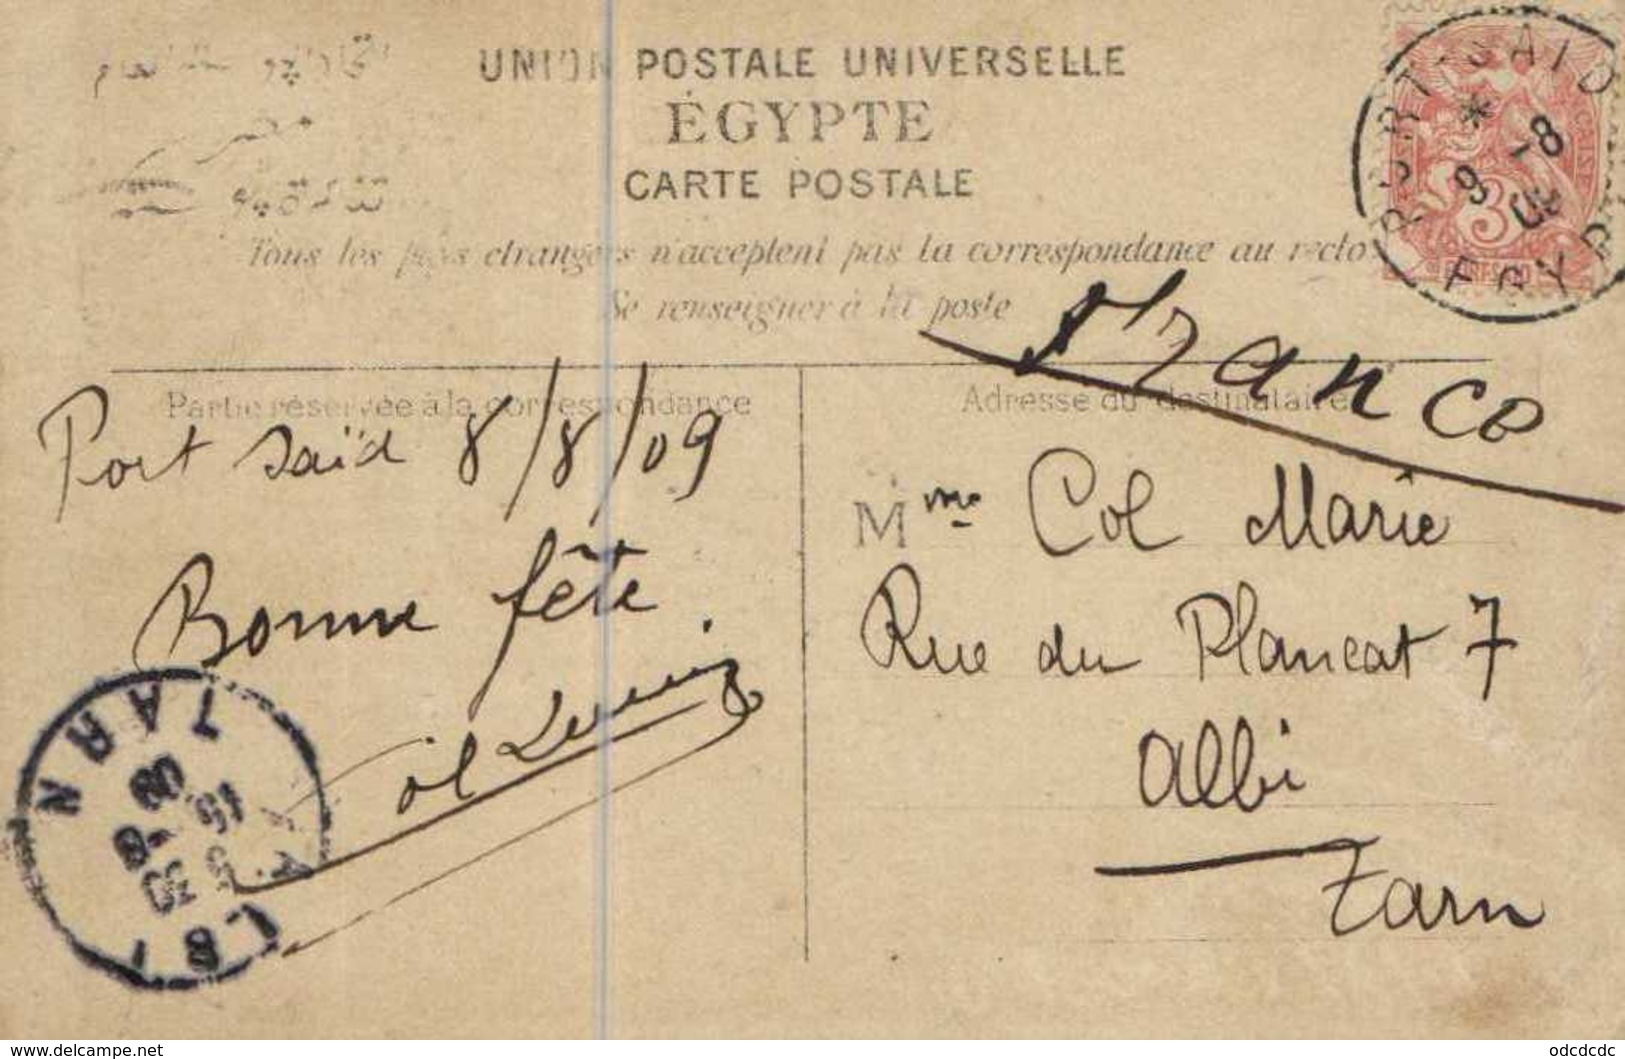 UNION POSTALE UNIVERSELLE
ÉGYPTE
CARTE POSTALE
Tous les pays étrangers n'acceptent pas la correspondance au recto
Se renseigner à la poste
PORT-SAID
9 -8
09
EGYP
France
Partie réservée à la correspondance
Port Saïd 8/8/09
Bonne fête
Col
ALBI
TARN
Adresse du destinataire
Mme Col Marie
Rue du Plancat 7
Albi
Tarn
www.delcampe.net
odcdcdc